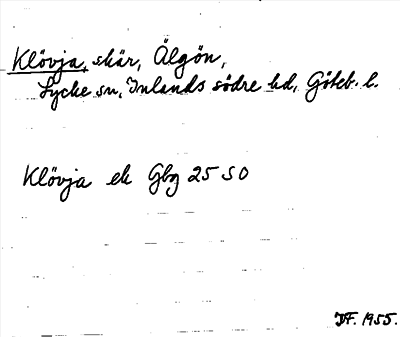 Klövja, skär, Älgön,
Lycke sn, Inlands södre hd, Göteb. l.
Klövja ek Gbg 25 SO
DF. 1955.